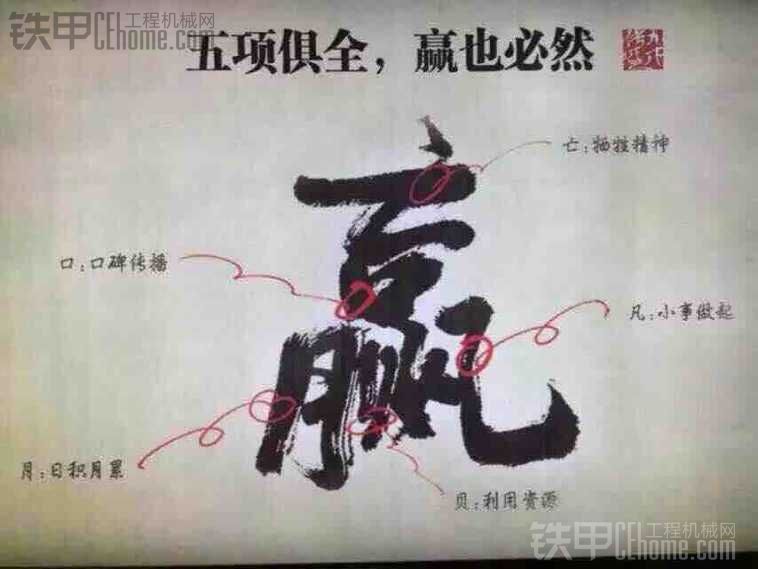 铁甲 工程机械网
CEhome.com
五项俱全，赢也必然
亡：牺牲精神
口：口碑传播
凡：小事做起
赢
月：日积月累
贝：利用资源
铁甲 工程机械网
CEhome.com